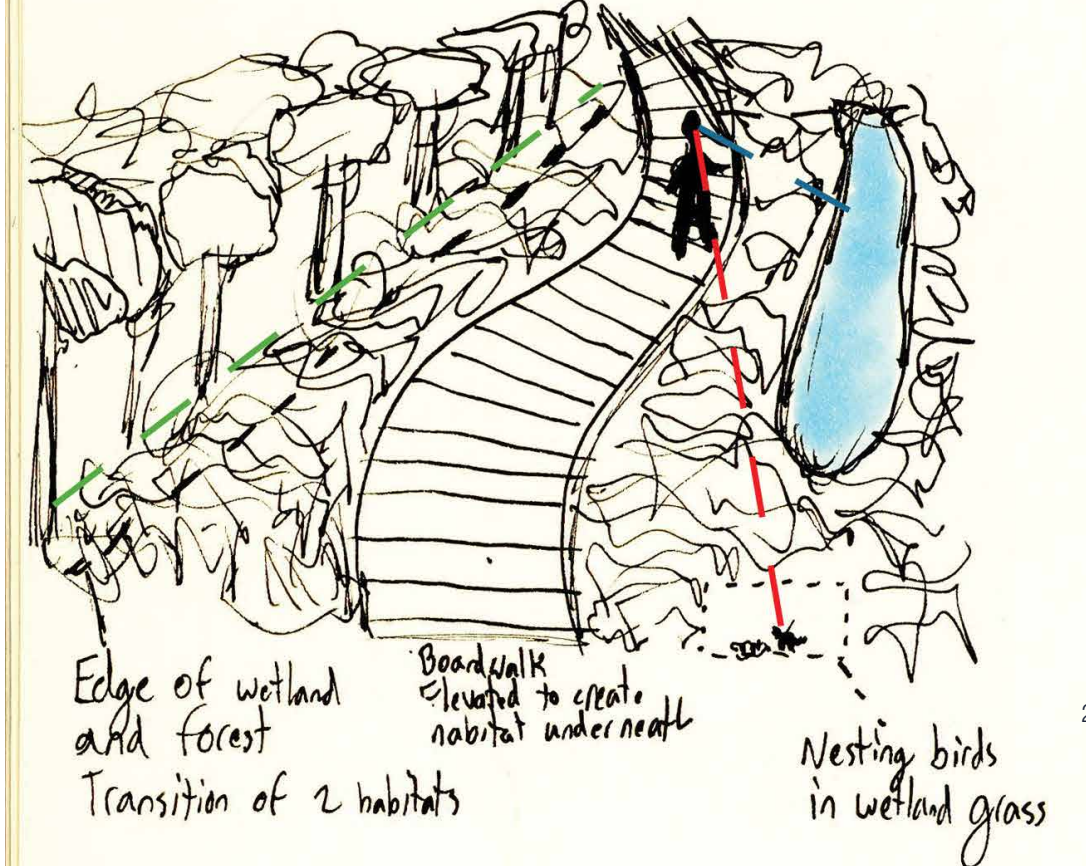 Edge of wetland
and forest
Transition of 2 habitats
Boardwalk
Elevated to create
habitat underneath
Nesting birds
in wetland grass
2